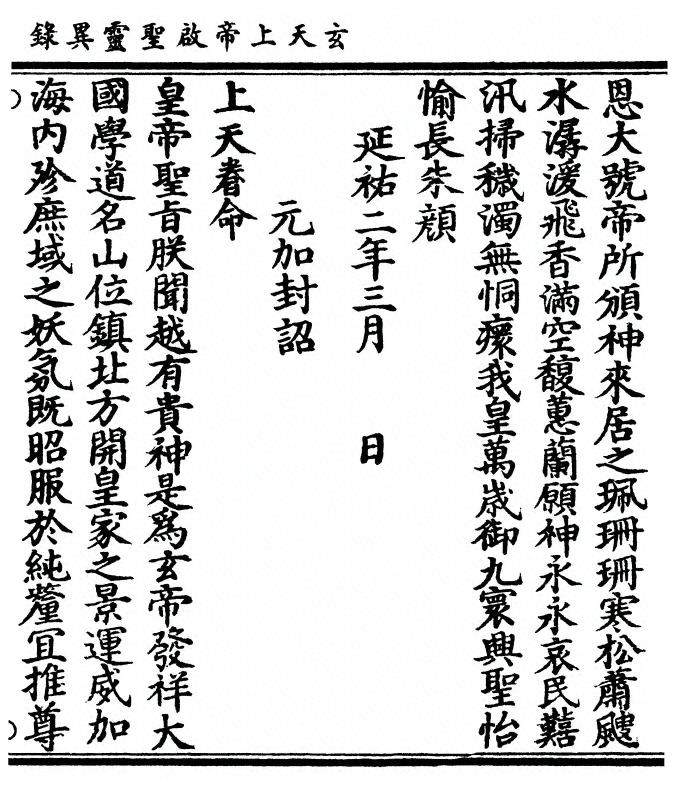 玄天上帝啟聖靈異錄
恩大號帝所頒神來居之珮珊珊寒松蕭颼
水潺湲飛香滿空馥蕙蘭願神永永哀民囏
汛掃穢濁無恫瘝我皇萬歲御九寰興聖怡
愉長朱顏
延祐二年三月　日
元加封詔
上天眷命
皇帝聖旨朕聞越有貴神是爲玄帝發祥大
國學道名山位鎮北方開皇家之景運威加
海內殄庶域之妖氛既昭服於純釐宜推尊